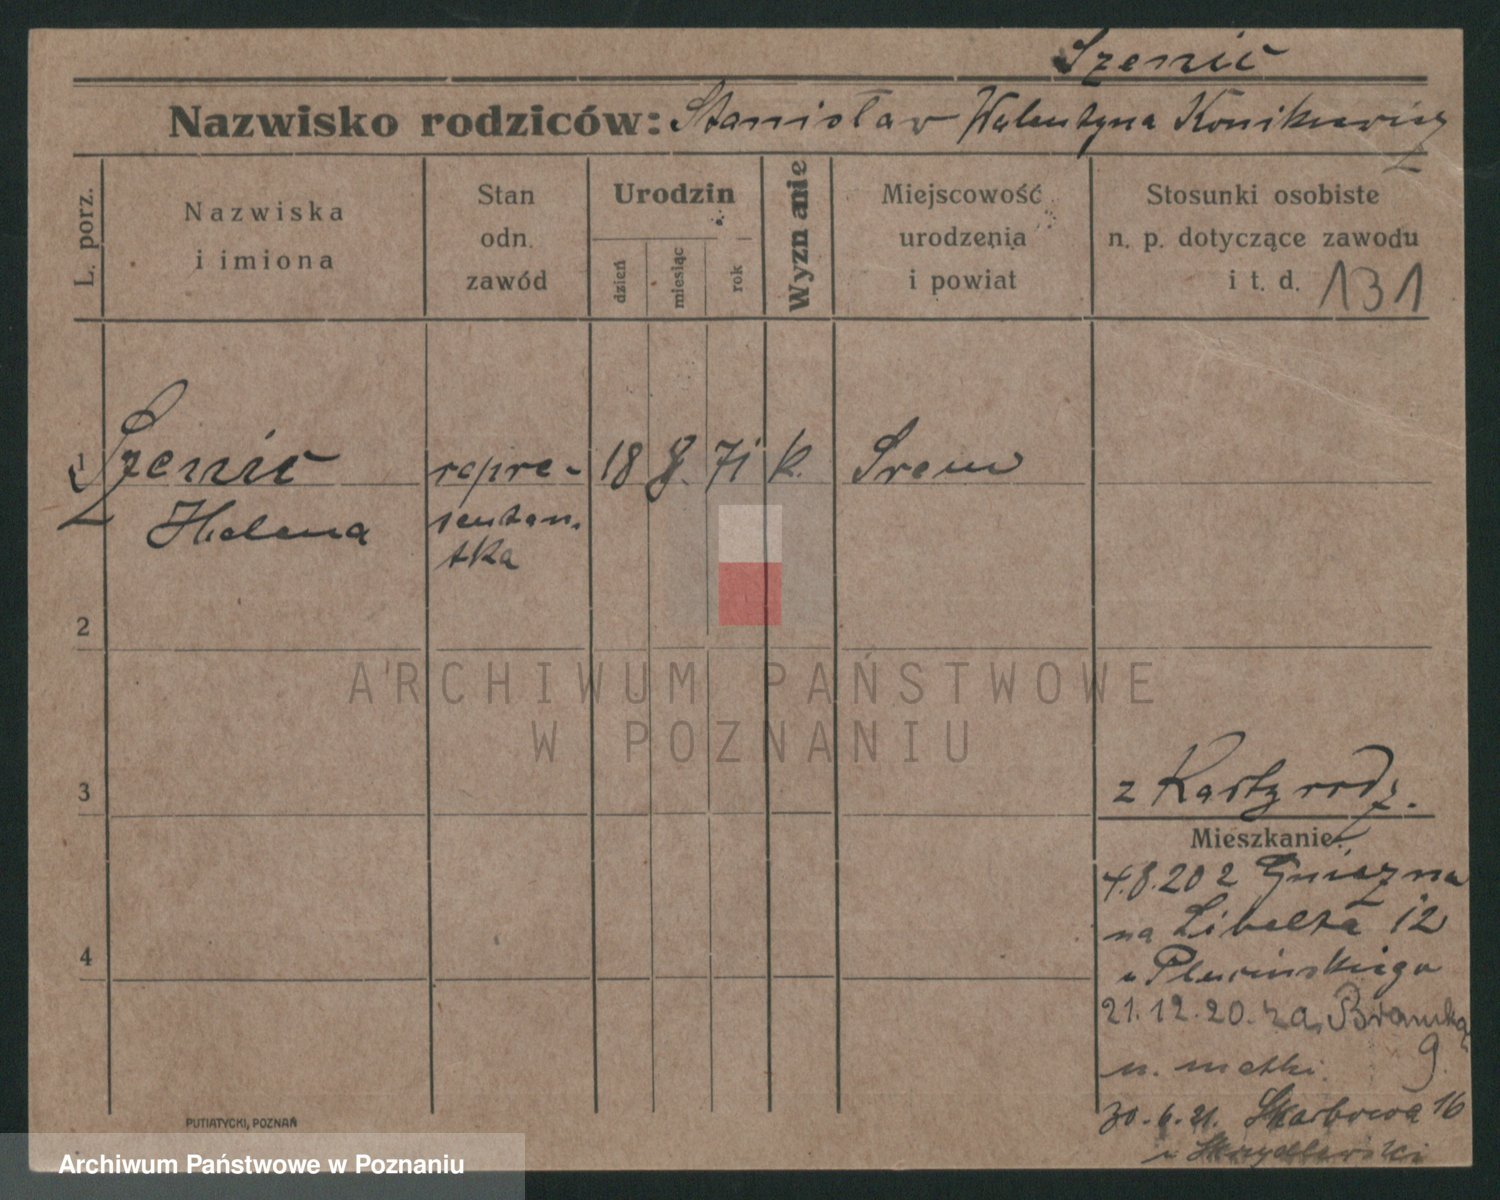 Szenic
Nazwisko rodziców: Stanisław Walentyna Konikiewicz
L. porz.
Nazwiska
i imiona
Stan
odn.
zawód
Urodzin
dzień
miesiąc
rok
Wyznanie
Miejscowość
urodzenia
i powiat
Stosunki osobiste
n. p. dotyczące zawodu
i t. d. 131
1 Szenic repre- 18 8. 71 k. Srem
Helena sentan-
tka
2
ARCHIWUM PAŃSTWOWE
W POZNANIU
3
z Karty rodz.
Mieszkanie:
4.8.20 z Gniezna
na Libelta 12
u Plucińskiego
21.12.20. za Bramką
9.
u. matki.
30.6.21. Skarbowa 16
u
4
PUTIATYCKI, POZNAŃ
Archiwum Państwowe w Poznaniu